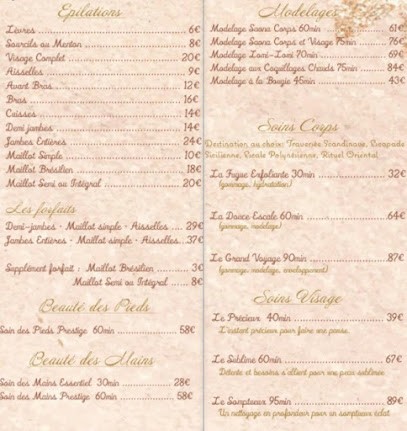 Epilations
Lèvres 6€
Sourcils ou Menton 8€
Visage Complet 20€
Aisselles 9€
Avant Bras 12€
Bras 16€
Cuisses 14€
Demi jambes 14€
Jambes Entières 24€
Maillot Simple 10€
Maillot Brésilien 18€
Maillot Semi ou Intégral 20€
Les forfaits
Demi-jambes - Maillot simple - Aisselles 29€
Jambes Entières - Maillot simple - Aisselles 37€
Supplément forfait : Maillot Brésilien 3€
Maillot Semi ou Intégral 8€
Beauté des Pieds
Soin des Pieds Prestige 60min 58€
Beauté des Mains
Soin des Mains Essentiel 30min 28€
Soin des Mains Prestige 60min 58€
Modelages
Modelage Soons Corps 60min 61€
Modelage Soons Corps et Visage 75min 76€
Modelage Lomi-Lomi 70min 69€
Modelage aux Coquillages Chauds 75min 84€
Modelage à la Bougie 45min 43€
Soins Corps
Destination au choix: Traversée Scandinave, Escapade
Sicilienne, Escale Polynésienne, Rituel Oriental
La Fugue Exfoliante 30min 32€
(gommage, hydratation)
La Douce Escale 60min 64€
(gommage, modelage)
Le Grand Voyage 90min 87€
(gommage, modelage, enveloppement)
Soins Visage
Le Précieux 40min 39€
L'instant précieux pour faire une pause.
Le Sublime 60min 67€
Détente et besoins s'allient pour une peau sublimée
Le Somptueux 95min 89€
Un nettoyage en profondeur pour un somptueux éclat